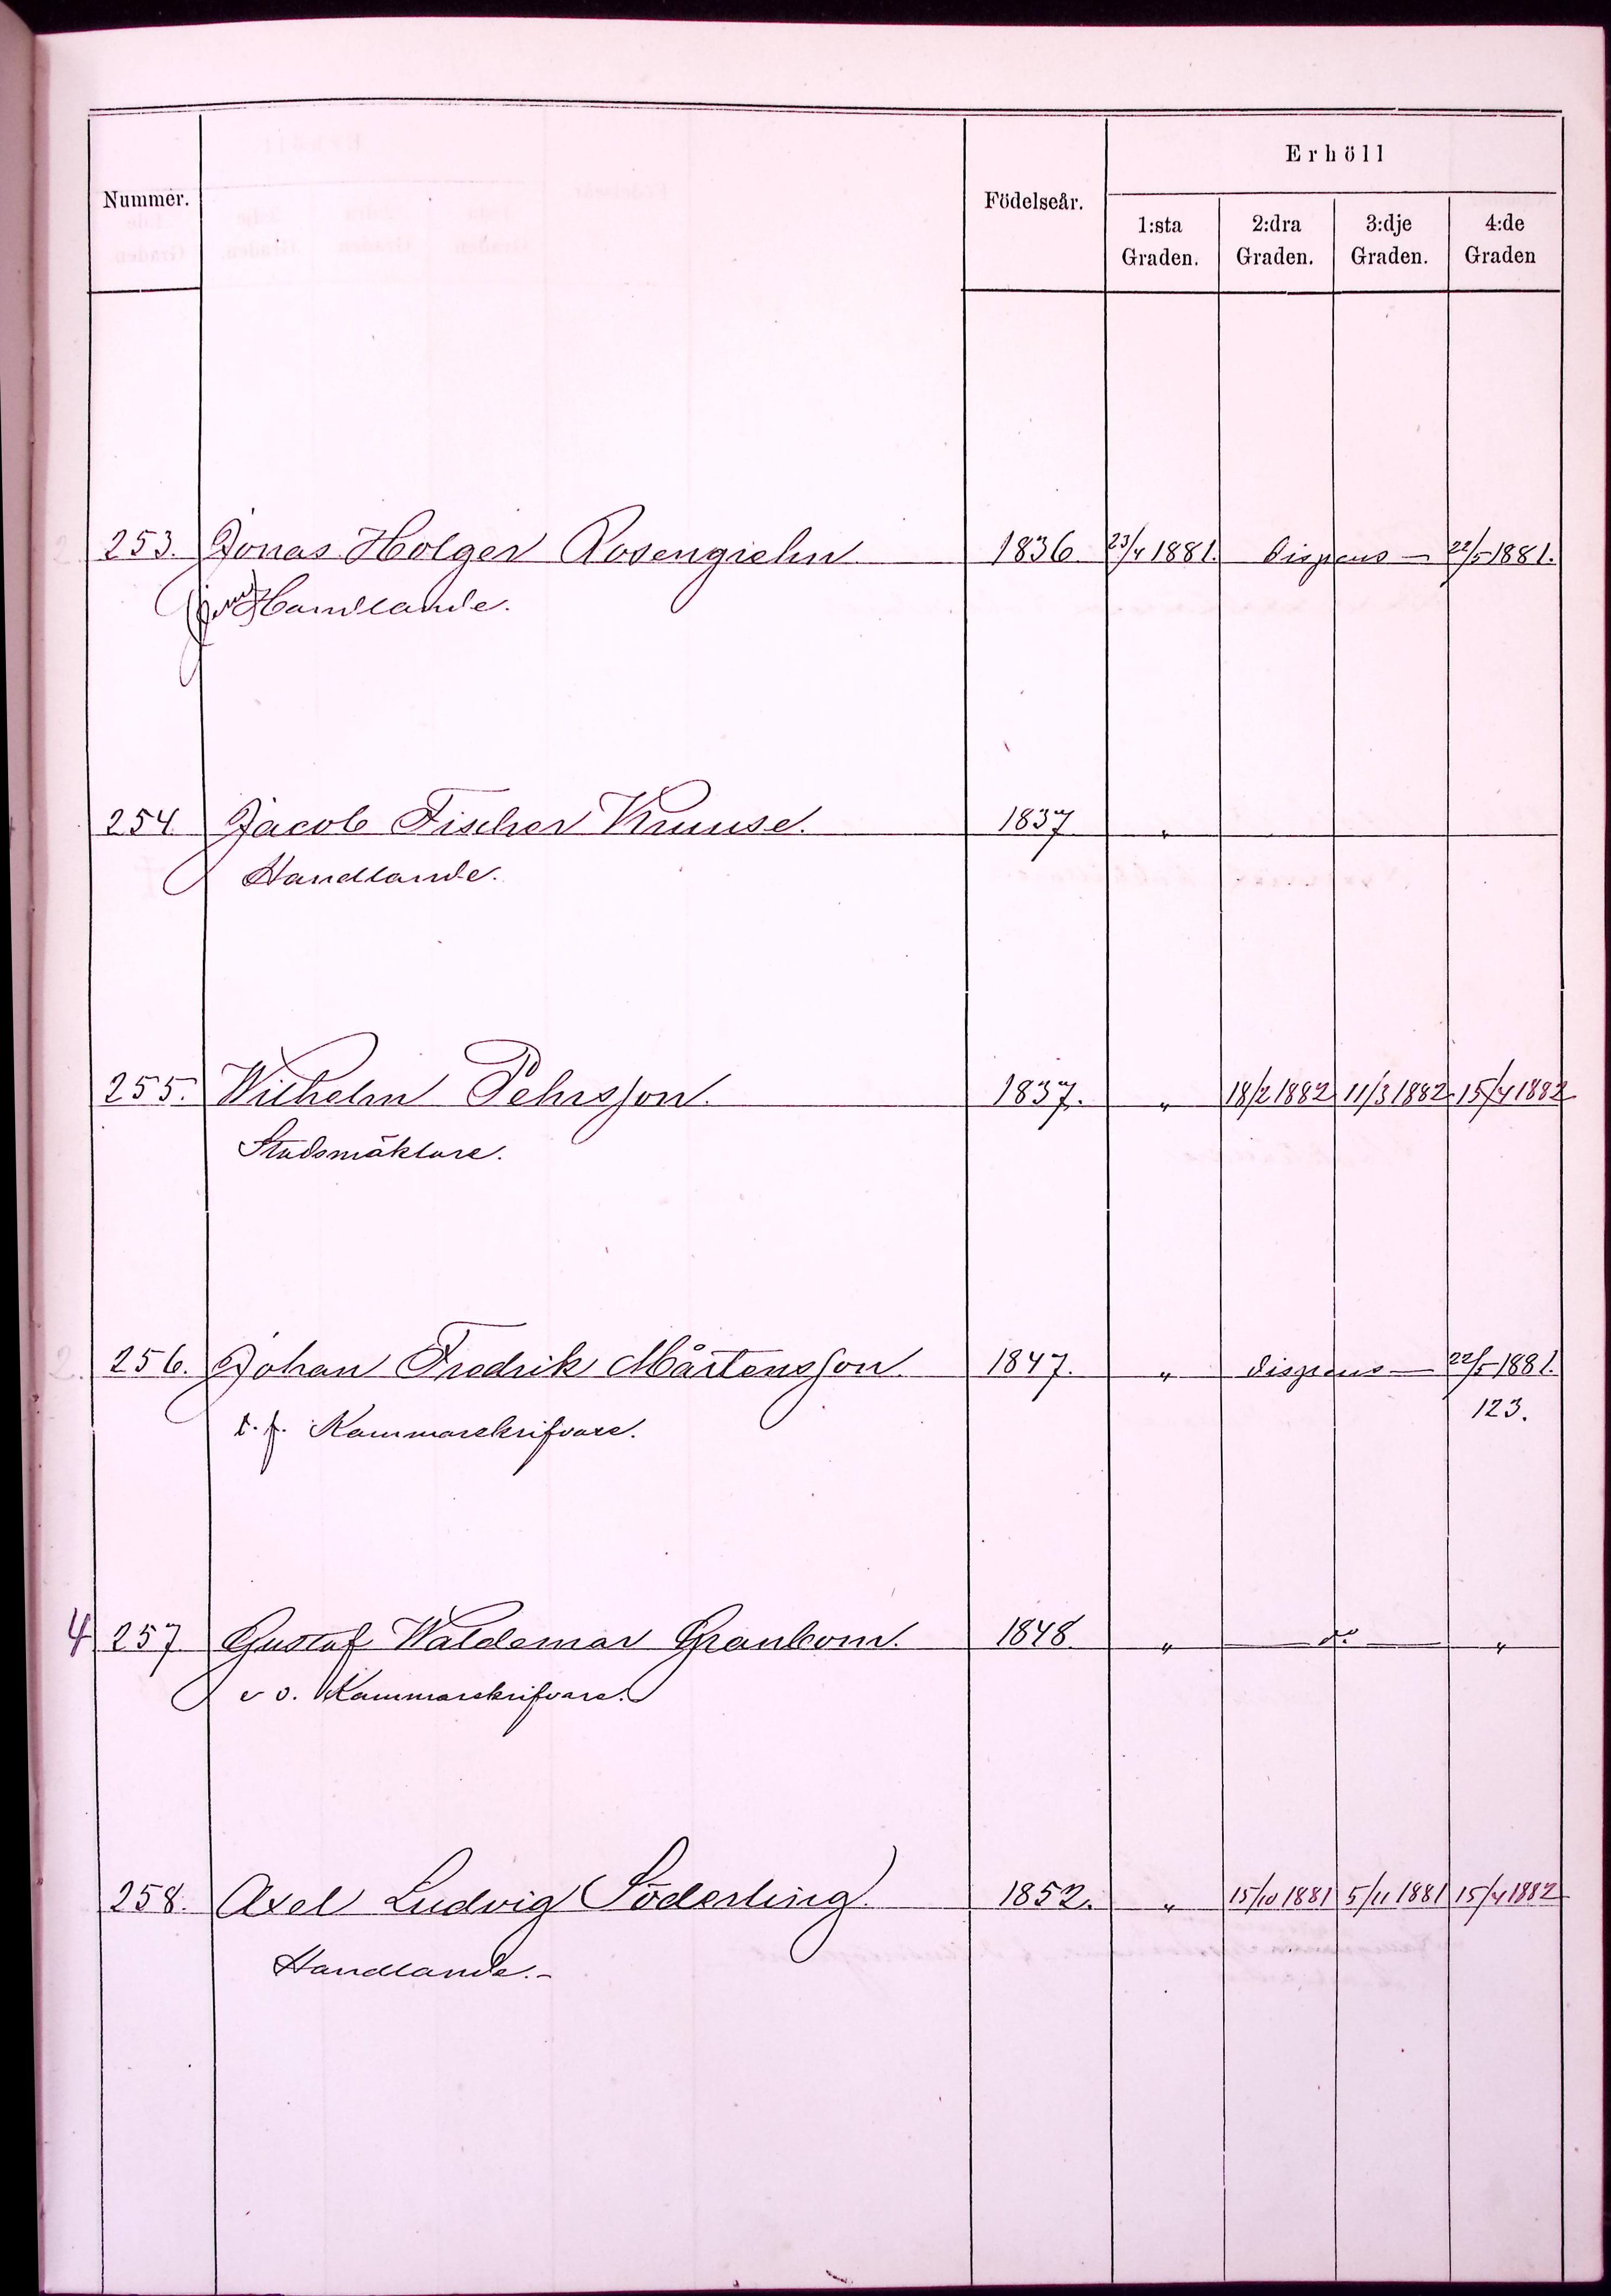 Erhöll
Nummer. Födelseår.
1:sta Graden. 2:dra Graden. 3:dje Graden. 4:de Graden
253. Jonas Holger Rosengrehn 1836 23/4 1881. dispens — 22/5 1881.
Handlande.
254 Jacob Fischer Kruuse. 1837 "
Handlande.
255. Wilhelm Pehrsson. 1837. " 18/2 1882 11/3 1882 15/4 1882
Stadsmäklare.
2. 256. Johan Fredrik Mårtensson. 1847. " dispens — 22/5 1881.
123.
t. f. Kammarskrifvare.
4 257 Gustaf Waldemar Granbom. 1848 " do "
e o. Kammarskrifvare.
258. Axel Ludvig Söderling. 1852. " 15/10 1881 5/11 1881 15/4 1882
Handlande.-